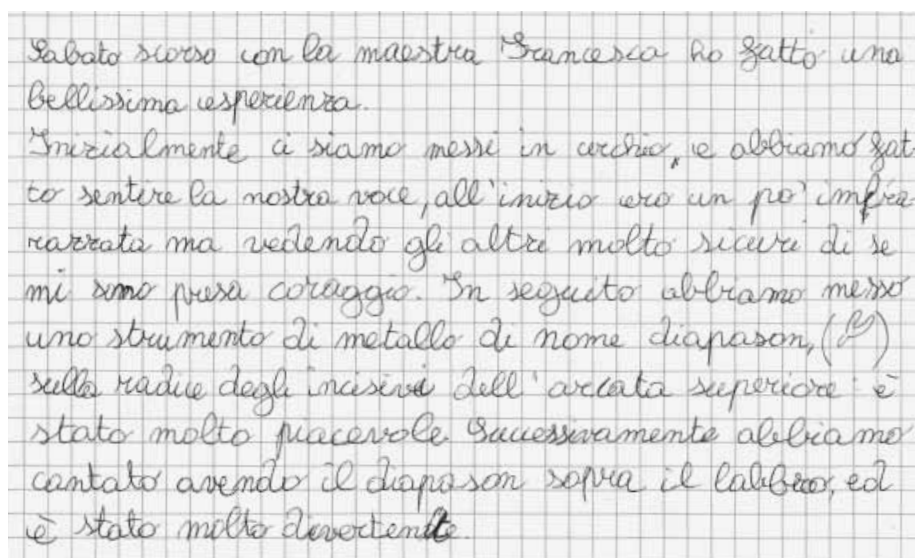 Sabato scorso con la maestra Francesca ho fatto una
bellissima esperienza.
Inizialmente ci siamo messi in cerchio, e abbiamo fat-
to sentire la nostra voce, all'inizio ero un po' imba
razzata ma vedendo gli altri molto sicuri di se
mi sono presa coraggio. In seguito abbiamo messo
uno strumento di metallo di nome diapason, ( )
sulla radice degli incisivi dell'arcata superiore: è
stato molto piacevole. Successivamente abbiamo
cantato avendo il diapason sopra il labbro, ed
è stato molto divertente.